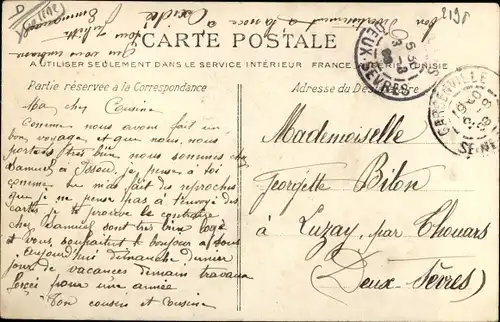 2198
CARTE POSTALE
A UTILISER SEULEMENT DANS LE SERVICE INTÉRIEUR FRANCE TUNISIE
Partie réservée a la Correspondance
Adresse du Destinataire
DEUX-SÈVRES
GARGENVILLE
SEINE
Ma cher Cousine
Comme nous avons fait un
bon voyage et que nous nous
portons très bien nous sommes chez
Samuel à Issou je pense à toi
comme tu m'as fait des reproches
que je ne pense pas à t'envoyer des
cartes je te prouve le contraire
chez Samuel sont très bien logé
et vous souhaitent le bonjour a tous
aujourd'hui dimanche dernier
jour de vacances demain travaux
forcés pour une année
Ton cousin et Cousine
Mademoiselle
Georgette Bilon
à Luzay, par Thouars
(Deux-Sèvres)